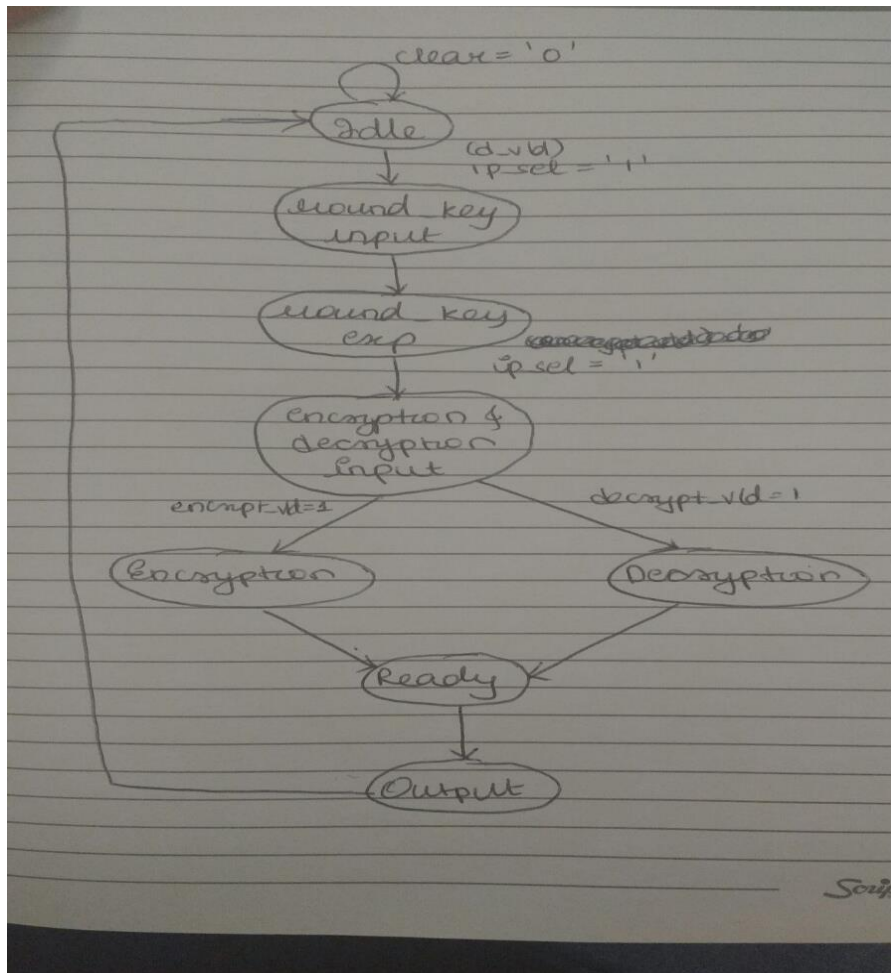 clear = '0'
Idle
(d_vld)
ip_sel = '1'
round_key
input
round_key
exp
ip sel = '1'
encryption &
decryption
input
encrypt_vld=1
decrypt_vld=1
Encryption
Decryption
Ready
Output